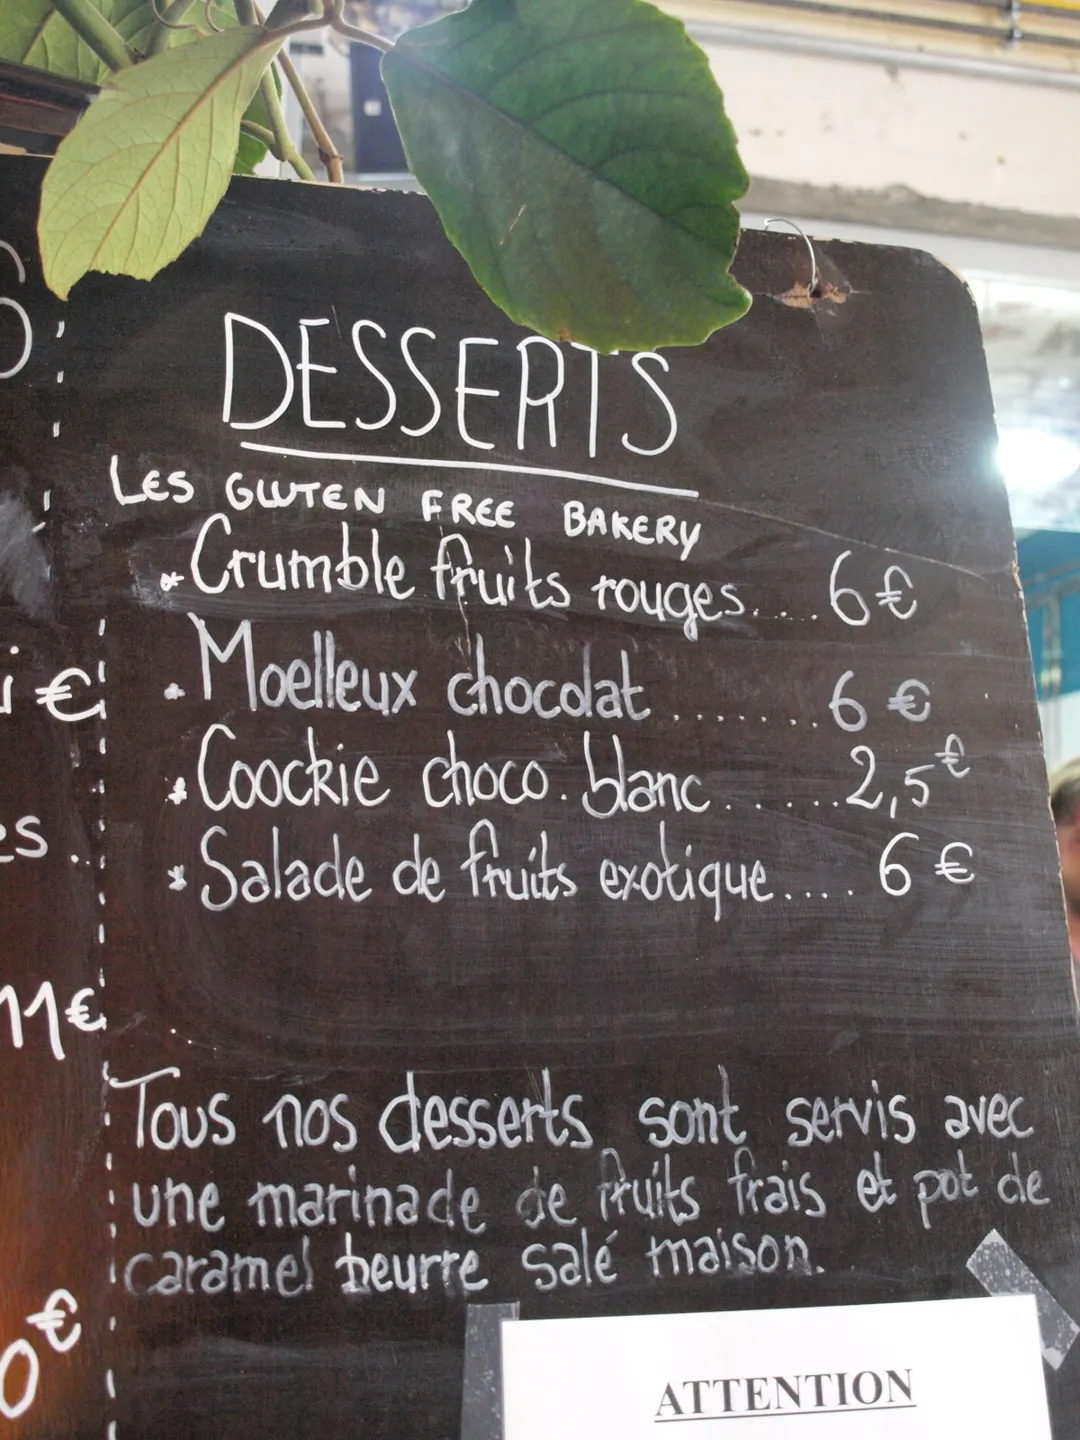 DESSERTS
LES GLUTEN FREE BAKERY
* Crumble fruits rouges.... 6€
* Moelleux chocolat ....... 6 €
* Coockie choco. blanc ...... 2,5€
* Salade de fruits exotique.... 6 €
Tous nos desserts sont servis avec
une marinade de fruits frais et pot de
caramel beurre salé maison.
ATTENTION
€
11€
€